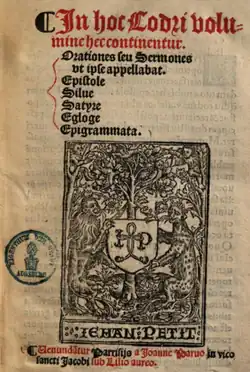 ¶In hoc Codri volu-
mine hec continentur.
Orationes seu Sermones
vt ipse appellabat.
Epistole
Silue
Satyre
Egloge
Epigrammata.
I P
IEHAN PETIT
¶Uenundãtur Parrisijs a Joanne Paruo in vico
sancti Jacobi sub Lilio aureo.